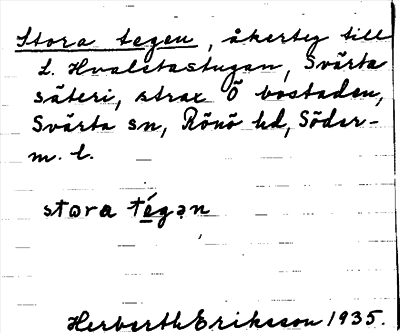 Stora tegen, åkerty till
L. Hvalstastugan, Svärta
säteri, strax Ö bostaden,
Svärta sn, Rönö hd, Söder-
m. l.
stora tégən
Herbert Eriksson 1935.